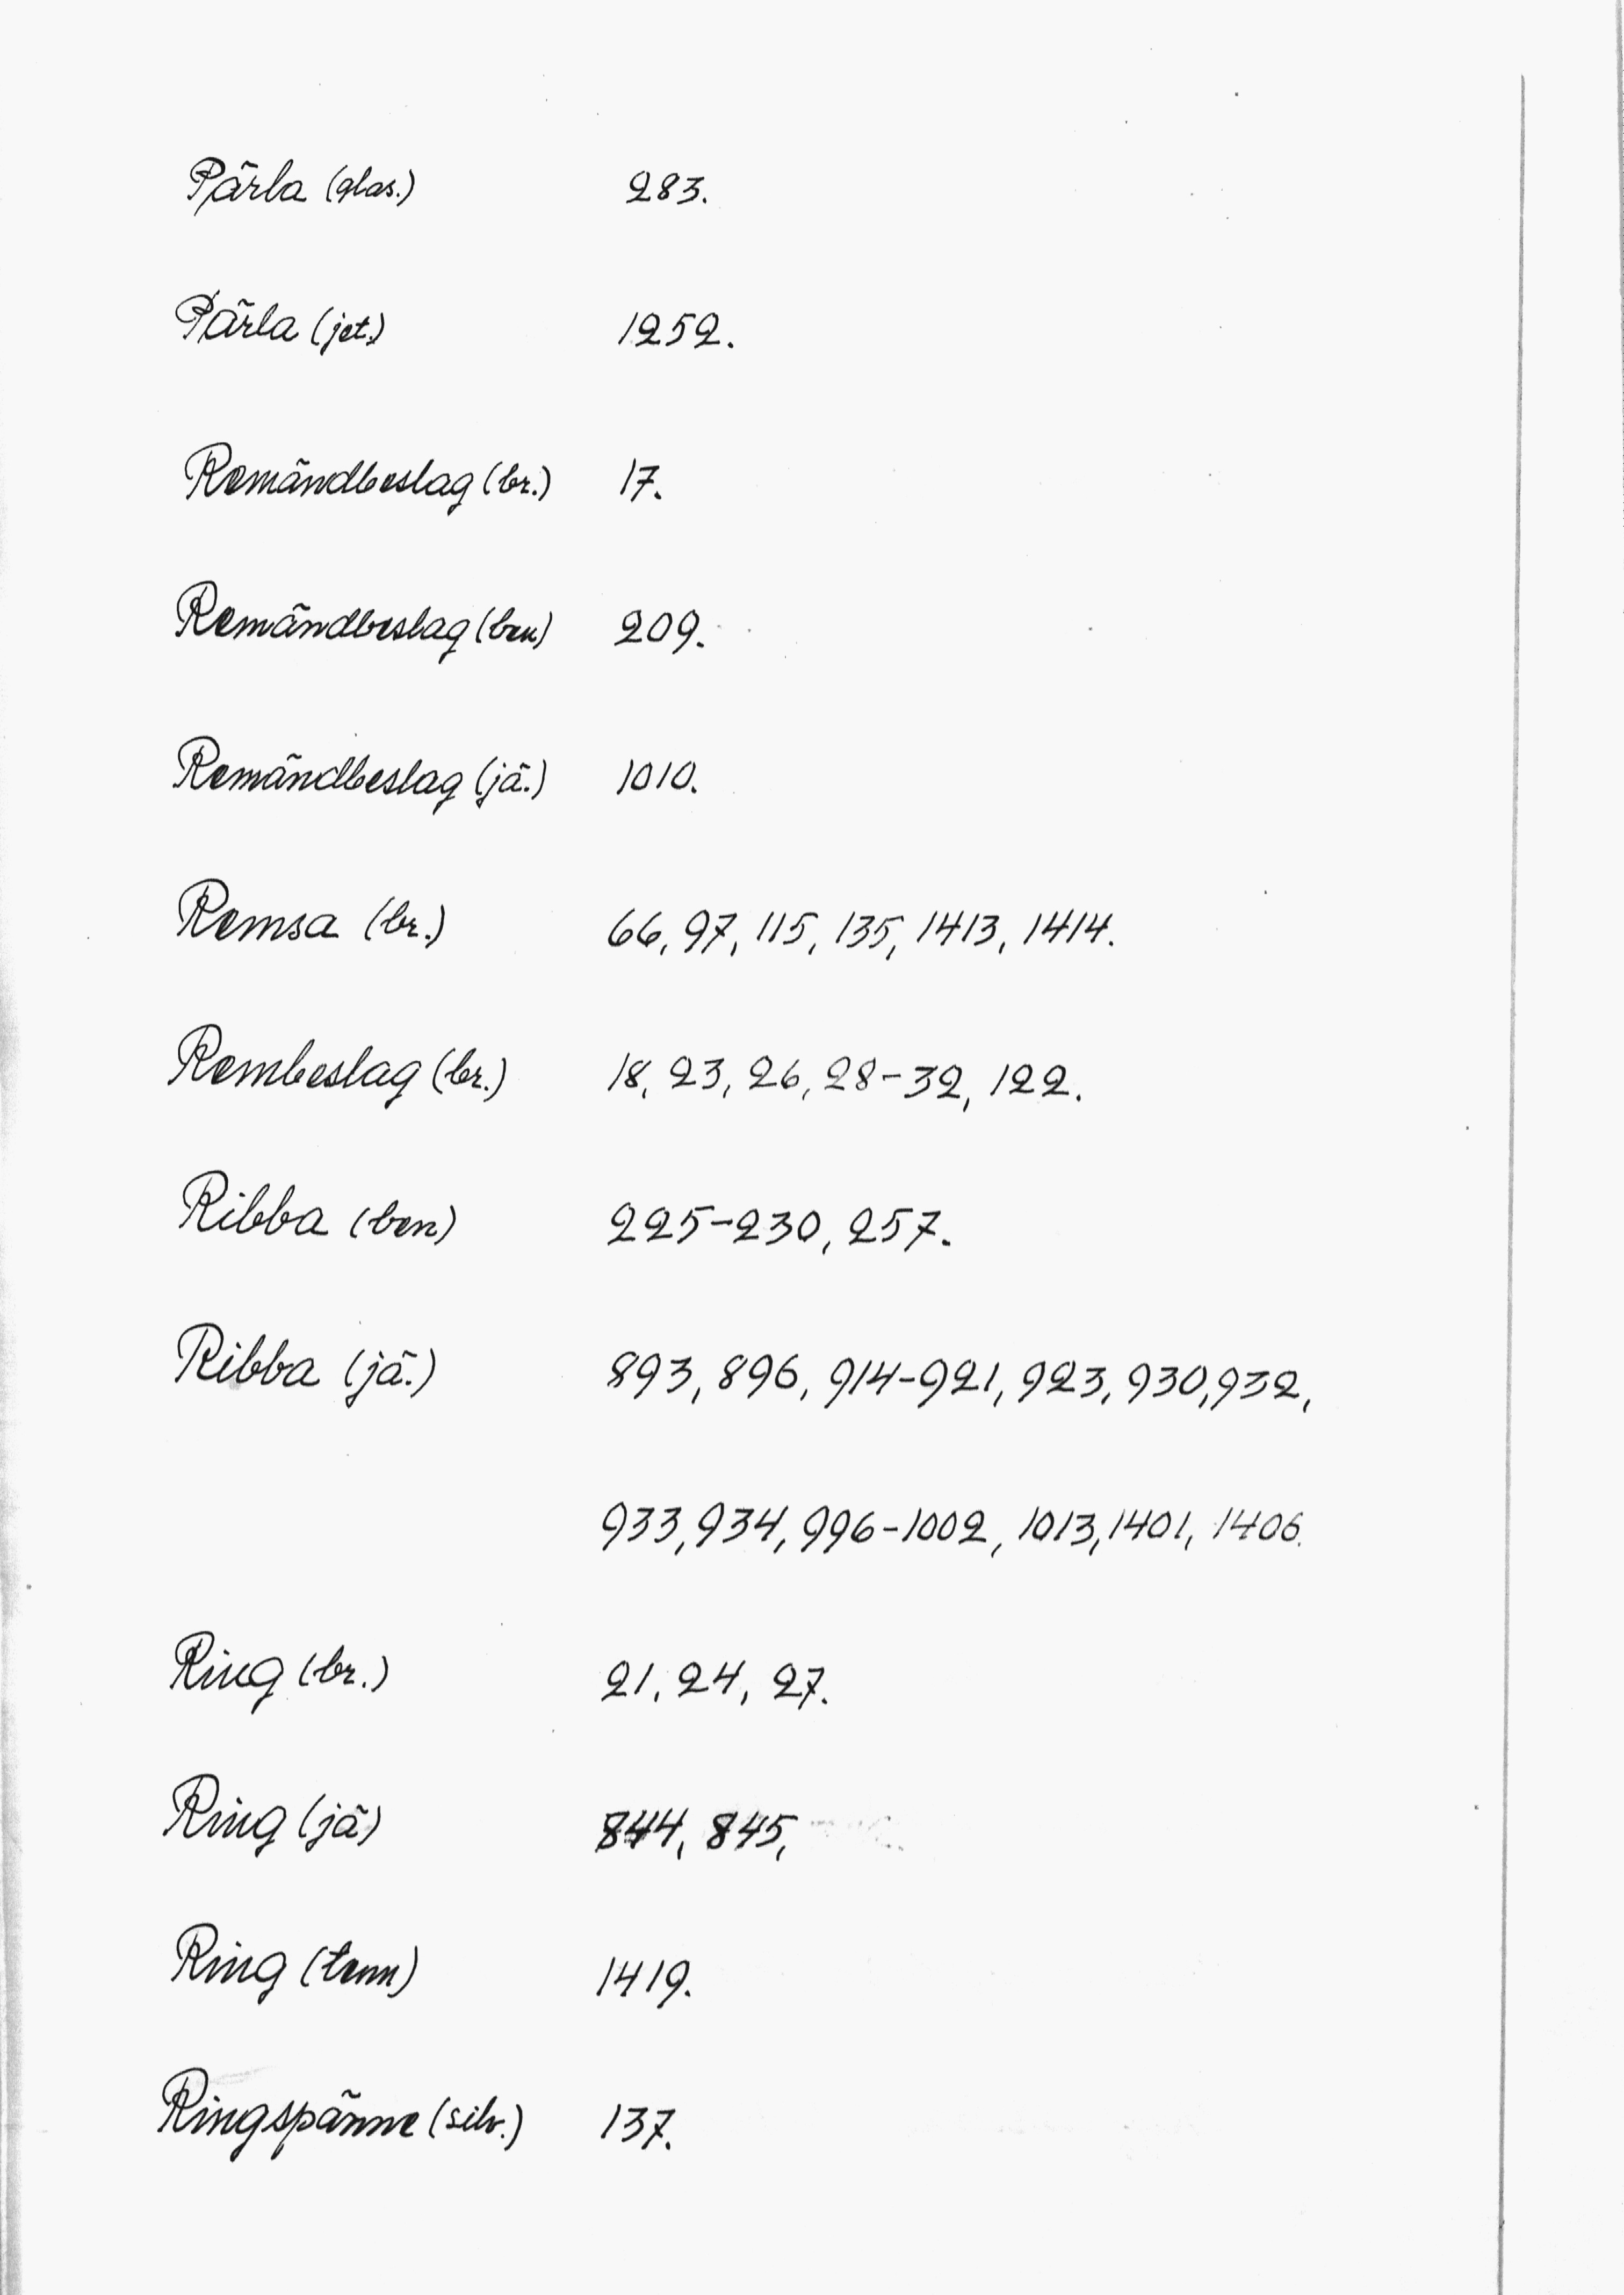 Pärla (glas.) 283.
Pärla (jet.) 1252.
Remändbeslag (br.) 17.
Remändbeslag (ben) 209.
Remändbeslag (jä.) 1010.
Remsa (br.) 66, 97, 115, 135, 1413, 1414.
Rembeslag (br.) 18, 23, 26, 28-32, 122.
Ribba (ben) 225-230, 257.
Ribba (jä.) 893, 896, 914-921, 923, 930, 932,
933, 934, 996-1002, 1013, 1401, 1406.
Ring (br.) 21, 24, 27.
Ring (jä) 844, 845,
Ring (tenn) 1419.
Ringspänne (silv.) 137.